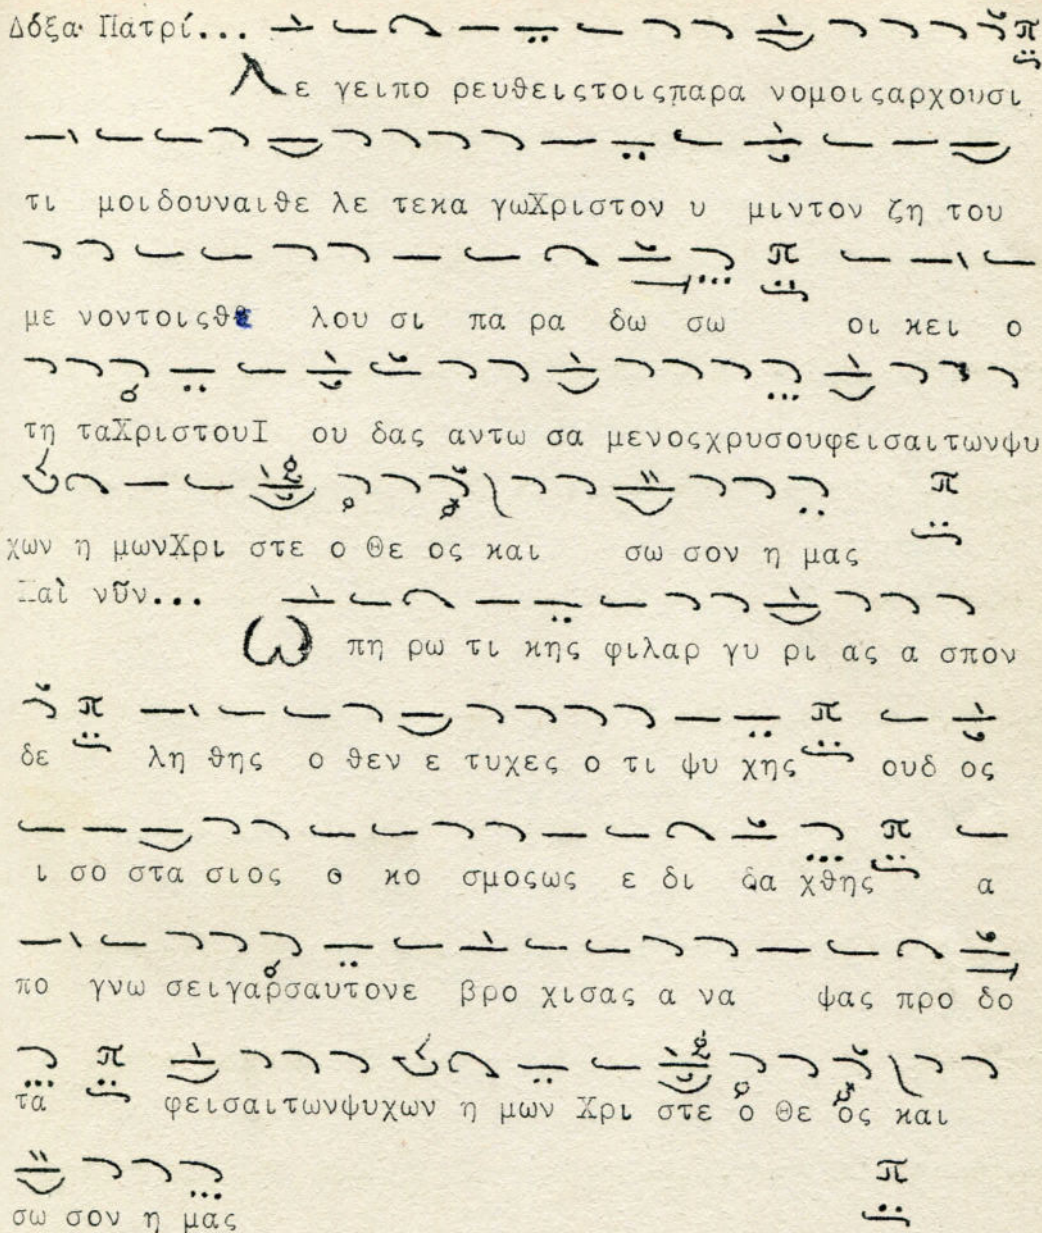 Δόξα Πατρί...
Λε γειπο ρευθειςτοιςπαρα νομοιςαρχουσι
τι μοιδουναιθε λε τεκα γωΧριστον υ μιντον ζη του
με νοντοιςθε λου σι πα ρα δω σω οι κει ο
τη ταΧριστουΙ ου δας αντω σα μενοςχρυσουφεισαιτωνψυ
χων η μωνΧρι στε ο Θε ος και σω σον η μας
Καὶ νῦν...
Ω πη ρω τι κης φιλαρ γυ ρι ας α σπον
δε λη θης ο θεν ε τυχες ο τι ψυ χης ουδ ος
ι σο στα σιος ο κο σμοςως ε δι δα χθης α
πο γνω σειγαρσαυτονε βρο χισας α να ψας προ δο
τα φεισαιτωνψυχων η μων Χρι στε ο Θε ος και
σω σον η μας